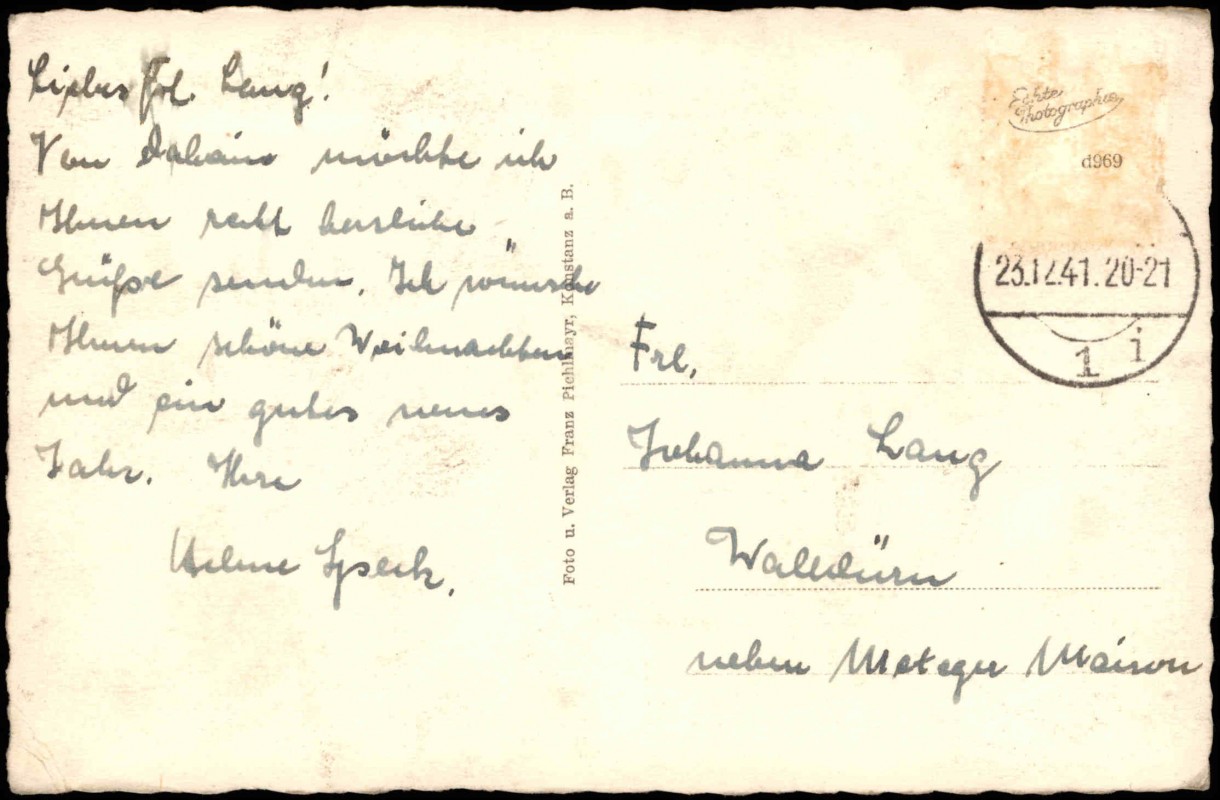 Liebes Frl. Lang!
Von daheim möchte ich
Ihnen recht herzliche
Grüße senden. Ich wünsche
Ihnen schöne Weihnachten
und ein gutes neues
Jahr. Ihre
Speck.
Foto u. Verlag Franz Pichlmayr, Konstanz a. B.
Echte
Photographie
d969
23.12.41.20-21
1 i
Frl.
Johanna Lang
Walldürn
neben Metzger Maison